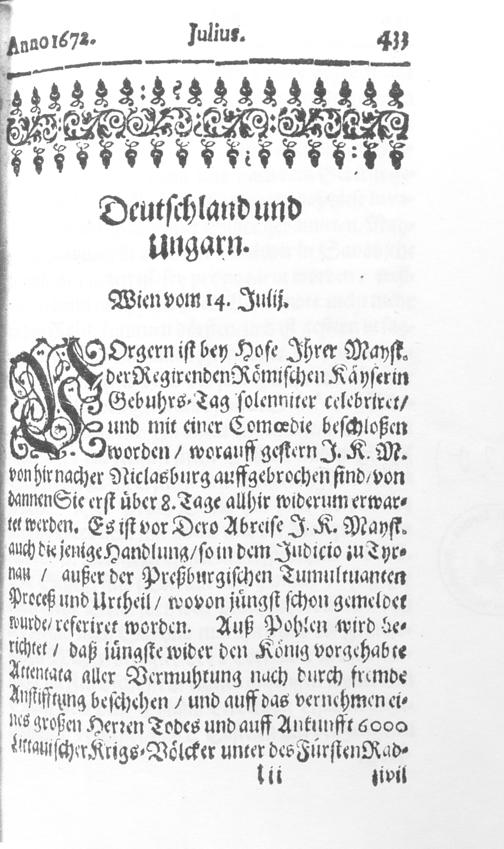 Anno 1672. Julius. 433
Deutschland und
Ungarn.
Wien vom 14. Julij.
VOrgern ist bey Hofe Ihrer Mayst.
der Regirenden Römischen Käyserin
Gebuhrs-Tag solenniter celebriret/
und mit einer Comœdie beschloßen
worden / worauff gestern J. K. M.
von hir nacher Niclasburg auffgebrochen sind/von
dannen Sie erst über 8. Tage allhir widerum erwar-
tet werden. Es ist vor Dero Abreise J. K. Mayst.
auch die jenige Handlung/so in dem Judicio zu Tyr-
nau / außer der Preßburgischen Tumultuanten
Proceß und Urtheil / wovon jüngst schon gemeldet
wurde/referiret worden. Auß Pohlen wird be-
richtet / daß jüngste wider den König vorgehabte
Attentata aller Vermuhtung nach durch fremde
Anstifftung beschehen / und auff das vernehmen ei-
nes großen Herren Todes und auff Ankunfft 6000
Littauischer Krigs-Völcker unter des Fürsten Rad-
Iii zivil